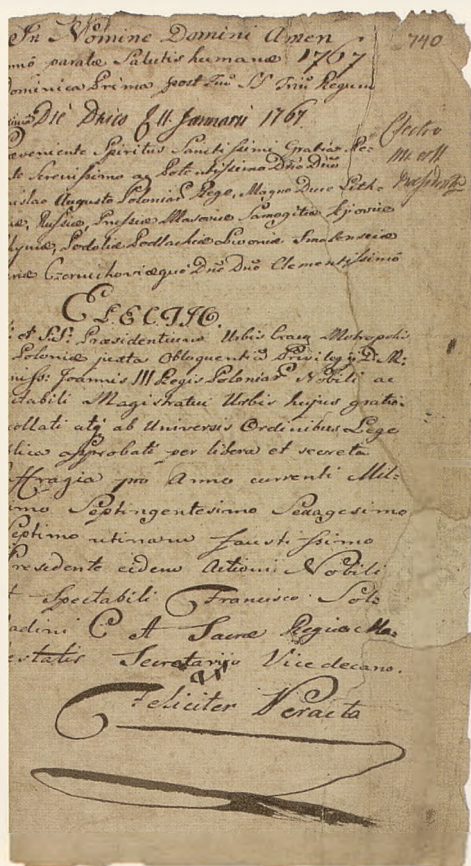 In Nomine Domini Amen
740
paratæ Salutis humanæ 1767
ominica Prima post Trium Regum
Die Dnico 11 Januarii 1767
Electio
Præsidentis
veniente Spiritus Sanctissimi Gratia Re-
Serenissimo ac Potentissimo Dño Dño
islao Augusto Poloniar Rege, Magno Duce Lith-
æ, Russiæ, Prussiæ Masoviæ Samogitiæ Kjoviæ
lyniæ, Podoliæ Podlachiæ Livoniæ Smolensciæ
Czerniechoviæque Dño Dño Clementissimo
ELECTIO.
Præsidentium Urbis Crac Metropolis
Poloniæ juxta Obloquentia Privilegij D. M:
niss: Joannis III Regis Poloniar Nobili ac
ctabili Magistratui Urbis hujus gratio-
collati atq ab Universis Ordinibus Lege
lica approbati per libera et secreta
ffragia pro Anno currenti Mil-
imo Septingentesimo Sexagesimo
Septimo utinam faustissimo
Præsidente eidem Actioni Nobili
t Spectabili Francisco Tol-
Sacræ Regiæ Ma-
estatis Secretario Vicedecano.
Feliciter Peracta